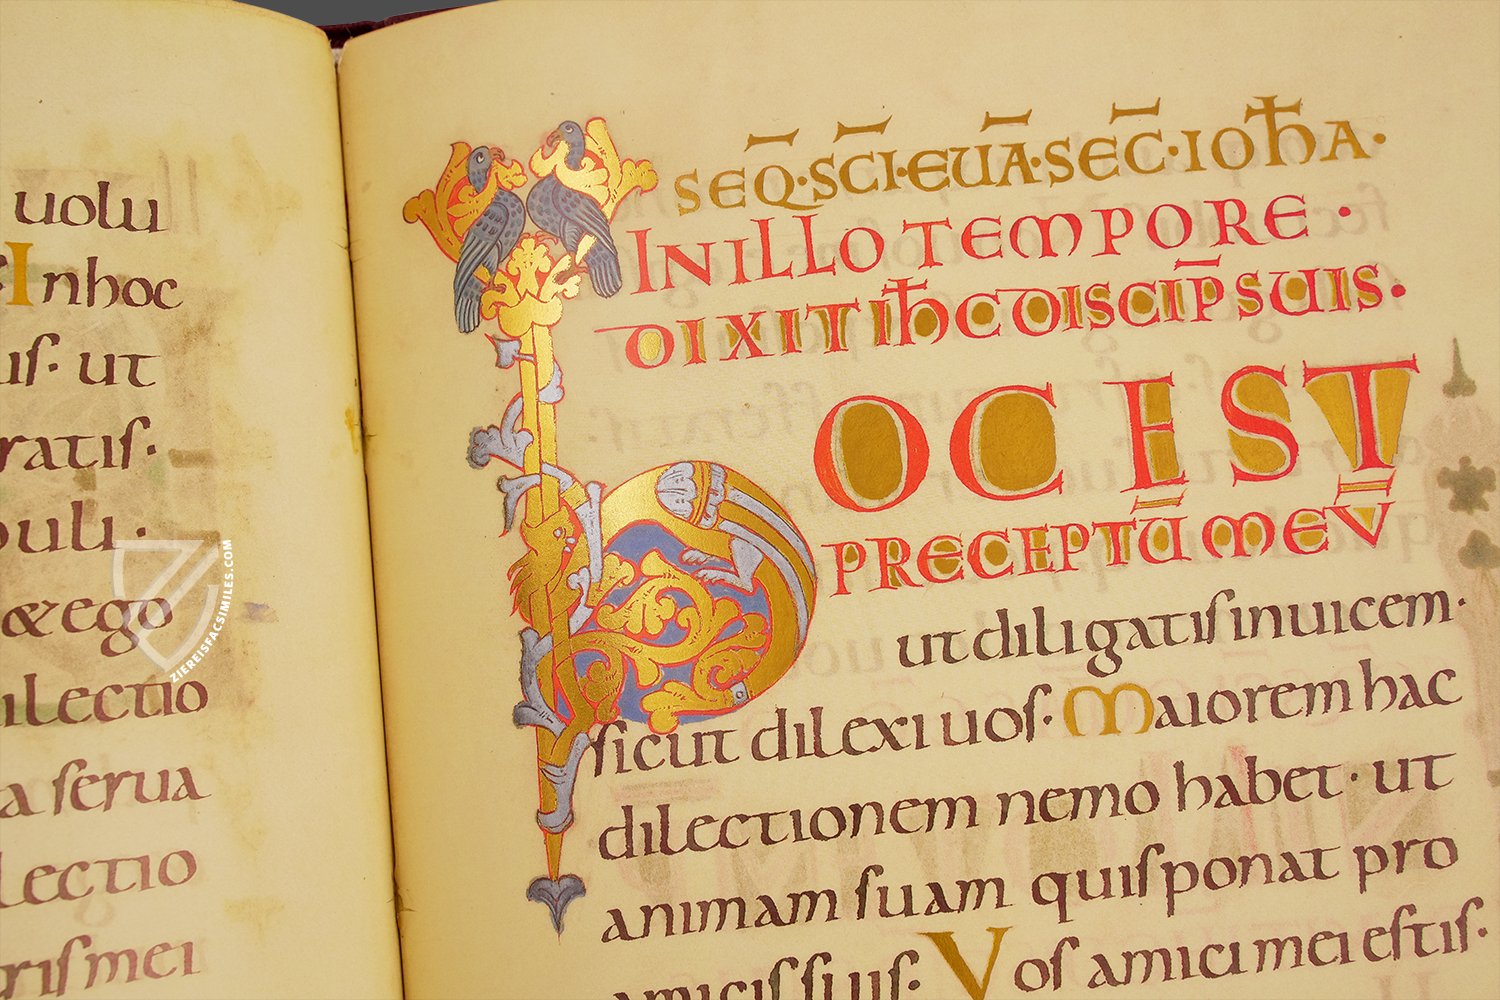 uolu
Inhoc
uſ· ut
ratiſ·
puli·
&ego
ilectio
a ſerua
lectio
riſ mei
SEQ̅·SC̅I·EUA̅·SEC̅·IOH̅A·
IN ILLO TEMPORE·
DIXIT IH̅C DISCIP̅ SUIS·
HOC EST
PRECEPTU̅ MEV̅
ut diligatiſ inuicem·
ſicut dilexi uoſ· Maiorem hac
dilectionem nemo habet· ut
animam ſuam quiſ ponat pro
amiciſ ſuiſ· Voſ amici mei eſtiſ·
ZIEREISFACSIMILES.COM